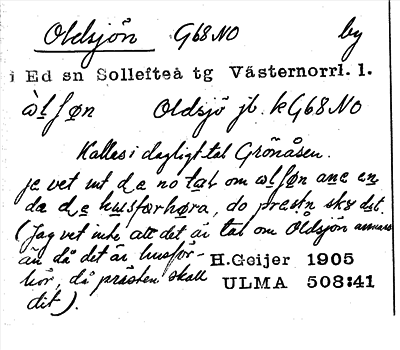 Oldsjön G68NO by
i Ed sn Sollefteå tg Västernorrl. l.
Oldsjö jb. kG68NO
Kallas i dagligt tal Grönåsen.
je vet int de no tal om
(Jag vet inte att det är tal om Oldsjön annars
än då det är husför-
hör, då prästen skall
dit).
H.Geijer 1905
ULMA 508:41